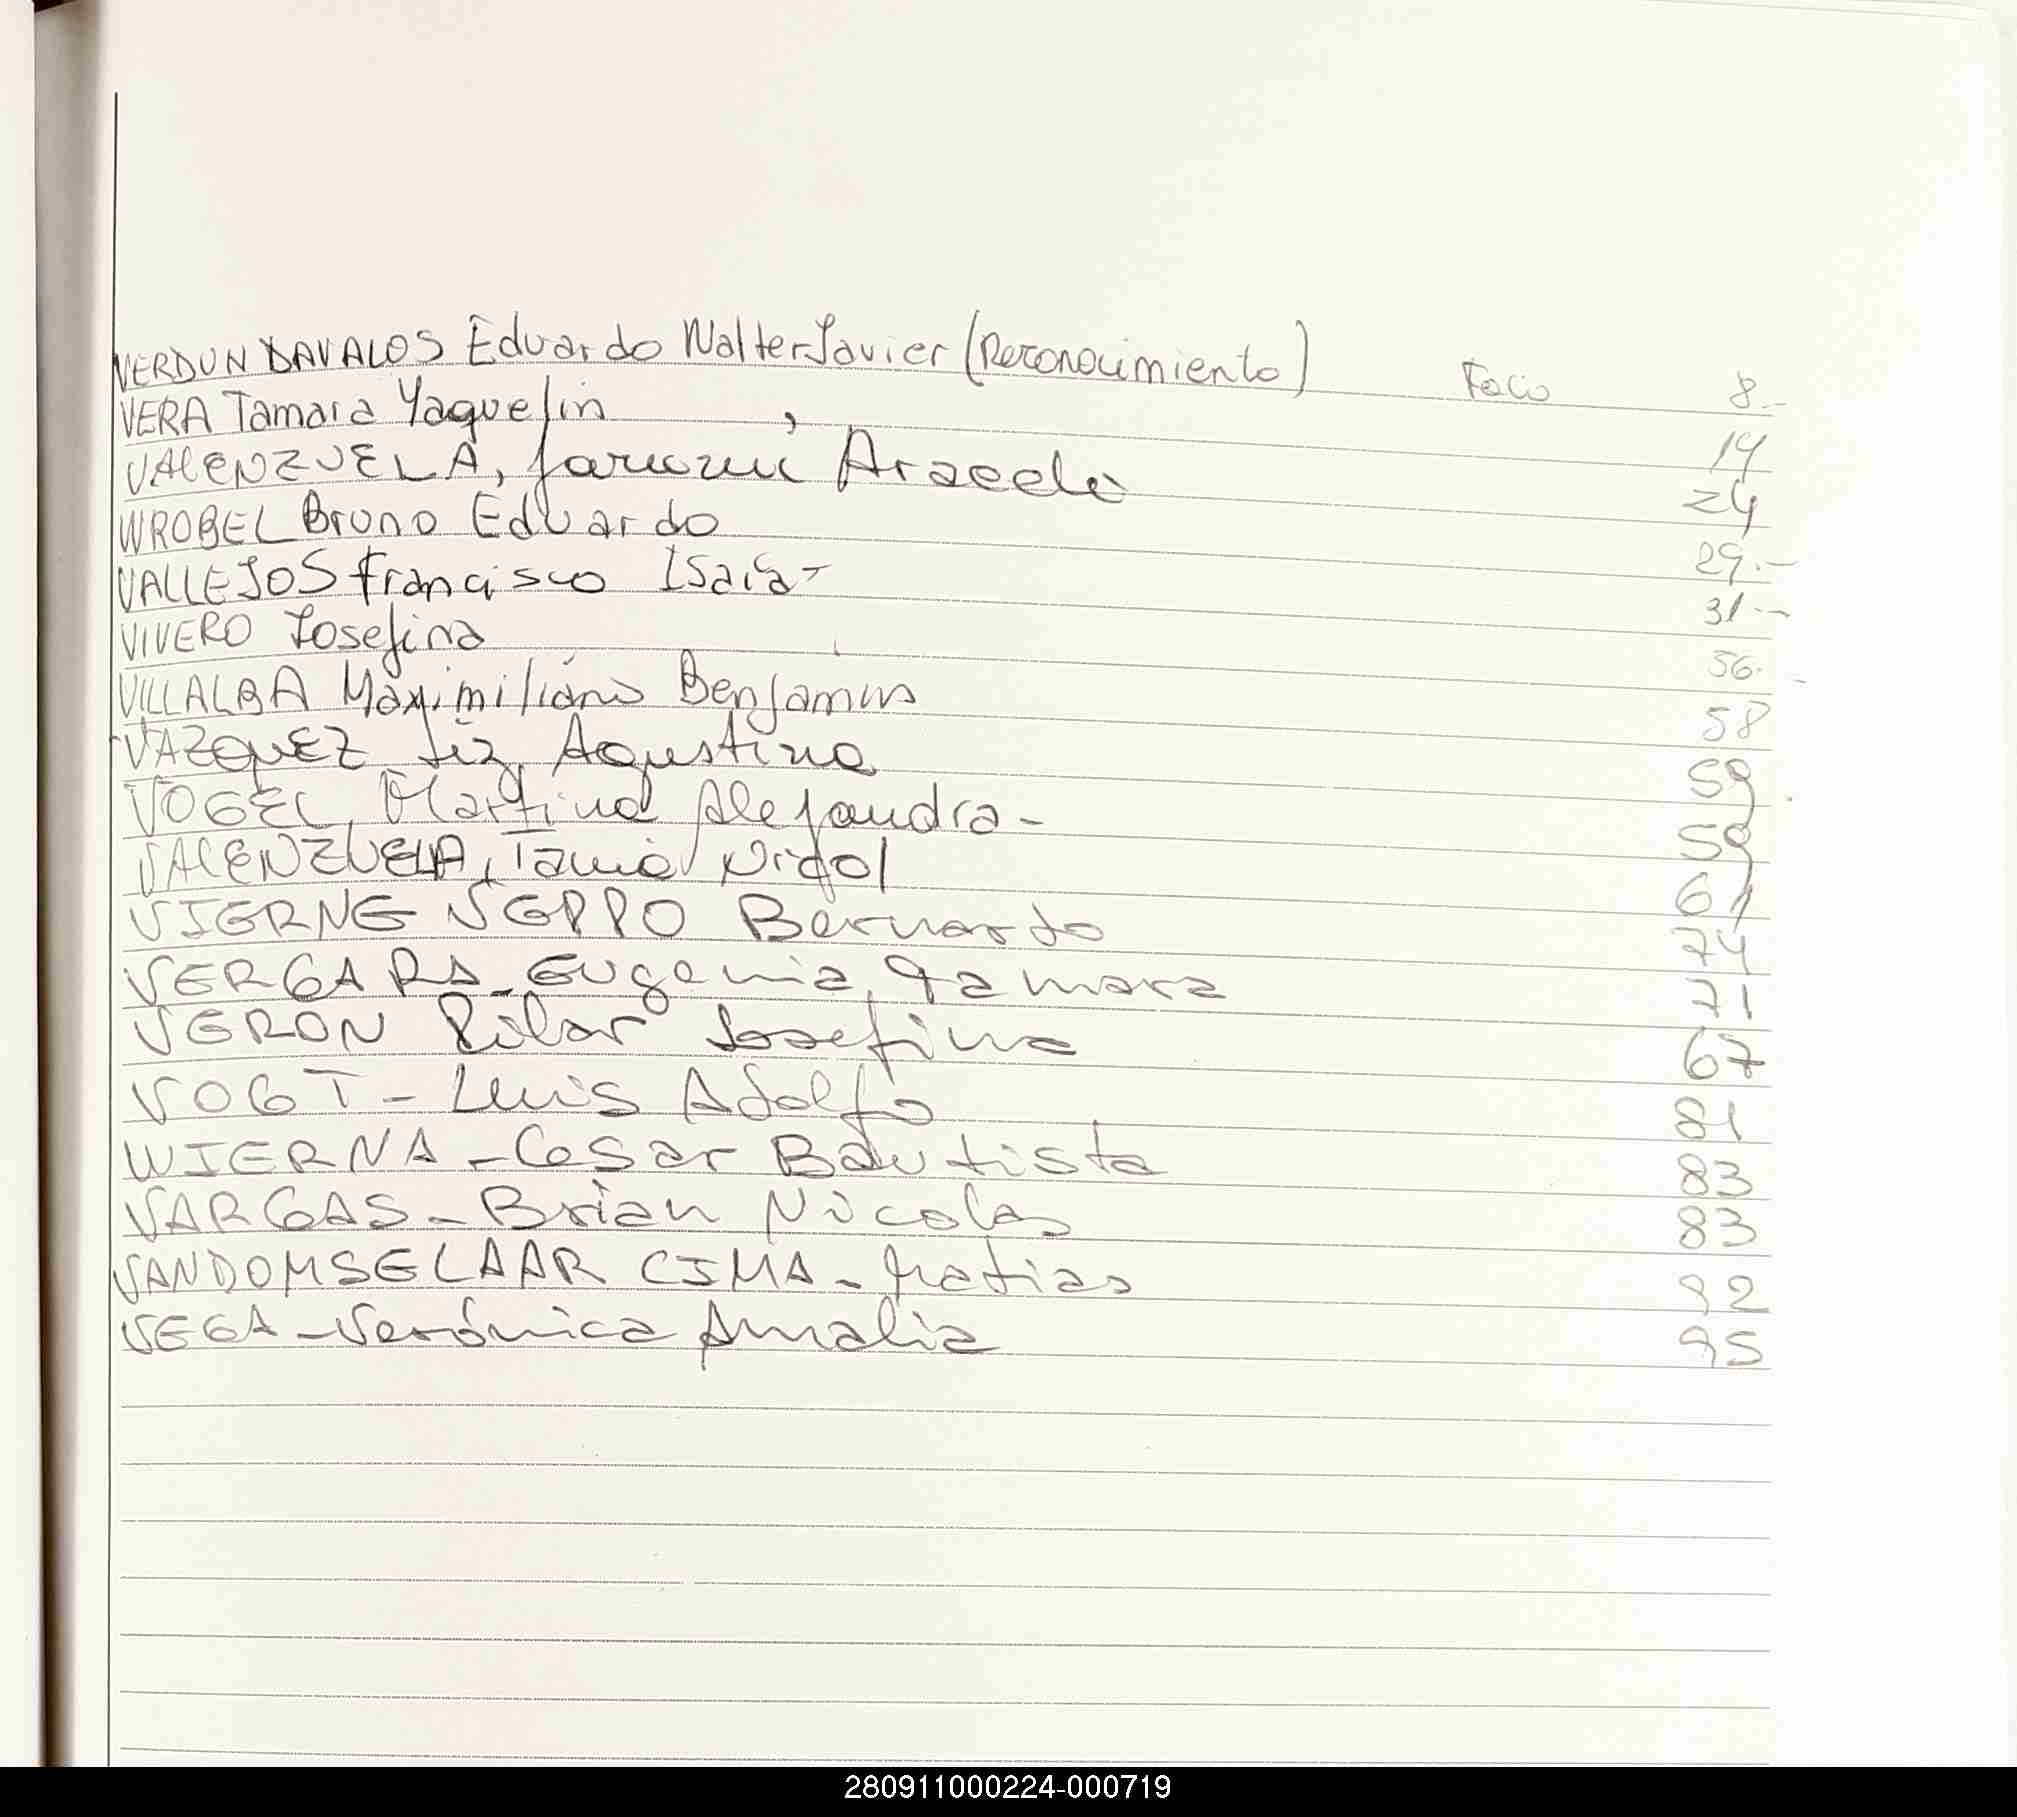 VERDUN DAVALOS Eduardo Walter Javier (Reconocimiento) Folio 8.-
VERA Tamara Yaquelin 14
VALENZUELA, Araceli 24
WROBEL Bruno Eduardo 29.-
VALLEJOS Francisco Isaias 31.-
VIVERO Josefina 56.-
VILLALBA Maximiliano Benjamin 58
VAZQUEZ Liz Agustina 59
VOGEL, Martina Alejandra - 59
VALENZUELA, Tania Nicol 61
VIERNE SEPPO Bernardo 74
VERGARA - Eugenia Tamara 71
VERON Pilar Josefina 67
VOGT - Luis Adolfo 81
WIERNA - Cesar Bautista 83
VARGAS - Brian Nicolas 83
VANDOMSELAAR CIMA - Matias 92
VEGA - Verónica Amalia 95
280911000224-000719